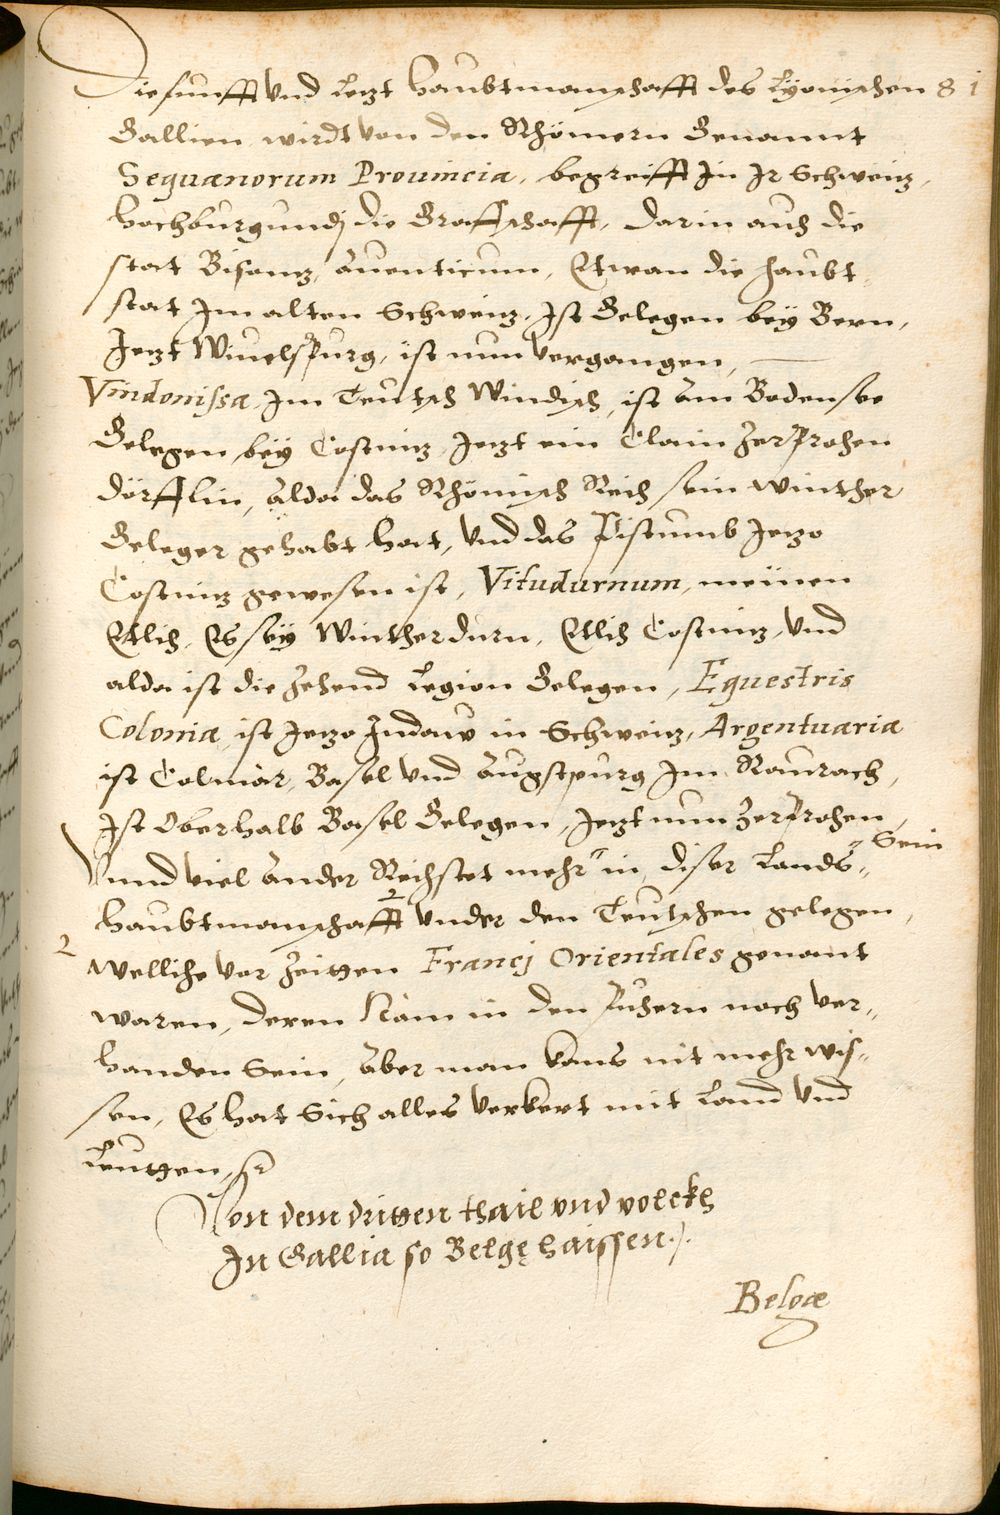 Die funfft Vnd Letzt Haubtmanschafft des Lÿonischen 81
Gallien, wirdt von den Rhömern Genannt
Sequanorum Prouincia, begreifft In Ir Schweitz,
Hochburgundj die Graffschafft, darin auch die
stat Bisantz, Auenticum, Etwan die haubt,
stat Im alten Schweitz, Ist Gelegen beÿ Bern,
Jetzt Wiuelspurg, ist nun vergangen,
Vindonissa Im Teutsch Windisch, ist am Bodensee
Gelegen, beÿ Costnitz Jetzt ein Clain Zerprochen
dörfflin, alda das Rhömisch Reich sein winther
Geleger gehabt hat, Vnd das Pistumb Jetzo
Costnitz gewesen ist, Vitudurnum, meinen
Etlich, Es seÿ Wintherdurn, Etlich Costnitz, Vnd
alda ist die Zehend Legion Gelegen, Equestris
Colonia, ist Jetzo Indaw in Schweitz, Argentuaria
ist Colmar, Basel Vnd Augstpurg Im Raurach,
Ist Oberhalb Basel Gelegen, Jetzt nun Zerprochen,
Vnnd viel Ander Reichstet mehr " in diser Lands,, " Sein
Haubtmanschafft 2 Vnder den Teutschen gelegen,
2 Welliche Vor Zeitten Francj Orientales genant
waren, deren Nam in den Puchern noch ver,,
handen Sein, Aber man kans nit mehr wis,,
sen, Es hat Sich alles Verkert mit Land Vnd
Leutten,
Von dem dritten thail vnd volckh
In Gallia so Belgę haissen.
Belgæ